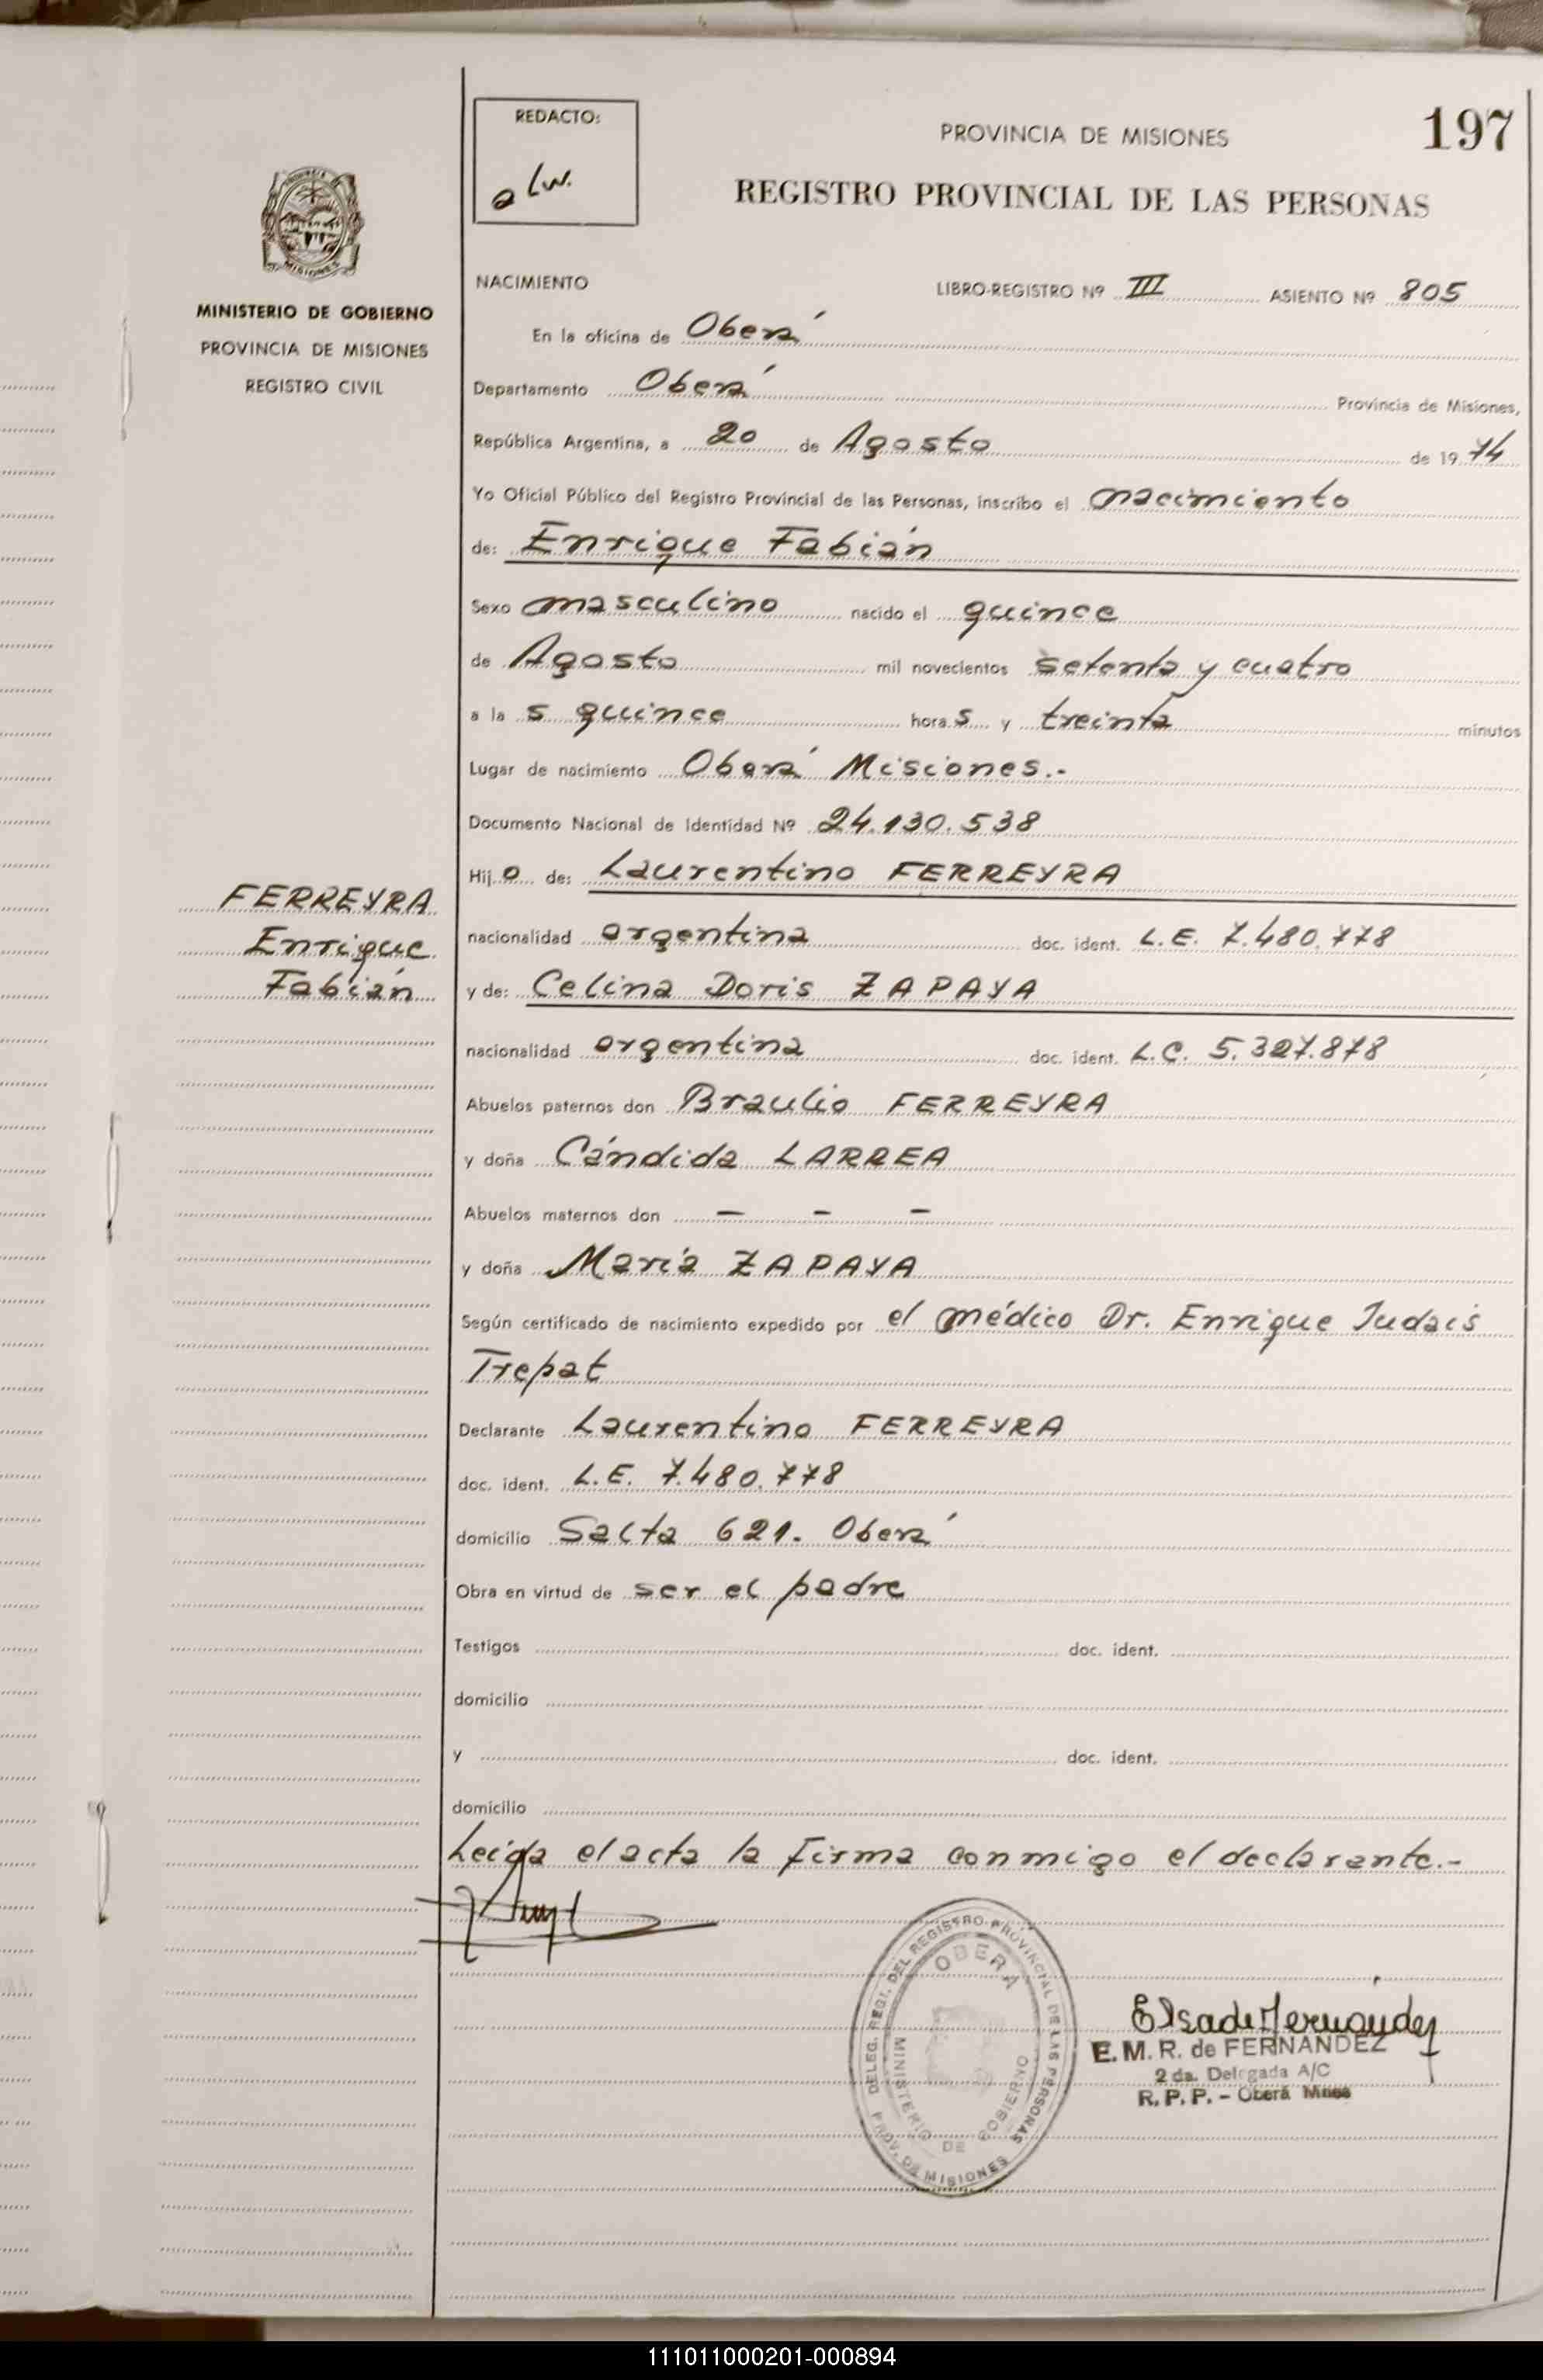 REDACTO:
a Lw.
PROVINCIA DE MISIONES
197
REGISTRO PROVINCIAL DE LAS PERSONAS
MISIONES
MINISTERIO DE GOBIERNO
PROVINCIA DE MISIONES
REGISTRO CIVIL
NACIMIENTO LIBRO-REGISTRO Nº III ASIENTO Nº 805
En la oficina de Oberá
Departamento Oberá Provincia de Misiones,
República Argentina, a 20 de Agosto de 1974
Yo Oficial Público del Registro Provincial de las Personas, inscribo el nacimiento
de: Enrique Fabián
Sexo masculino nacido el quince
de Agosto mil novecientos setenta y cuatro
a la s quince hora s y treinta minutos
Lugar de nacimiento Oberá Misiones.-
Documento Nacional de Identidad Nº 24.130.538
Hij o de: Laurentino FERREYRA
FERREYRA
Enrique
Fabián
nacionalidad argentina doc. ident. L.E. 7.480.778
y de: Celina Doris ZAPAYA
nacionalidad argentina doc. ident. L.C. 5.327.878
Abuelos paternos don Braulio FERREYRA
y doña Cándida LARREA
Abuelos maternos don — - —
y doña María ZAPAYA
Según certificado de nacimiento expedido por el médico Dr. Enrique Judais
Trepat
Declarante Laurentino FERREYRA
doc. ident. L.E. 7.480.778
domicilio Salta 621. Oberá
Obra en virtud de ser el padre
Testigos doc. ident.
domicilio
y doc. ident.
domicilio
Leída el acta la firma conmigo el declarante.-
DELEG. REGI. DEL REGISTRO PROVINCIAL DE LAS PERSONAS
OBERA
MINISTERIO DE GOBIERNO
PROV. DE MISIONES
Elsa de Fernández
E. M. R. de FERNANDEZ
2 da. Delegada A/C
R. P. P. - Oberá Mnes
111011000201-000894